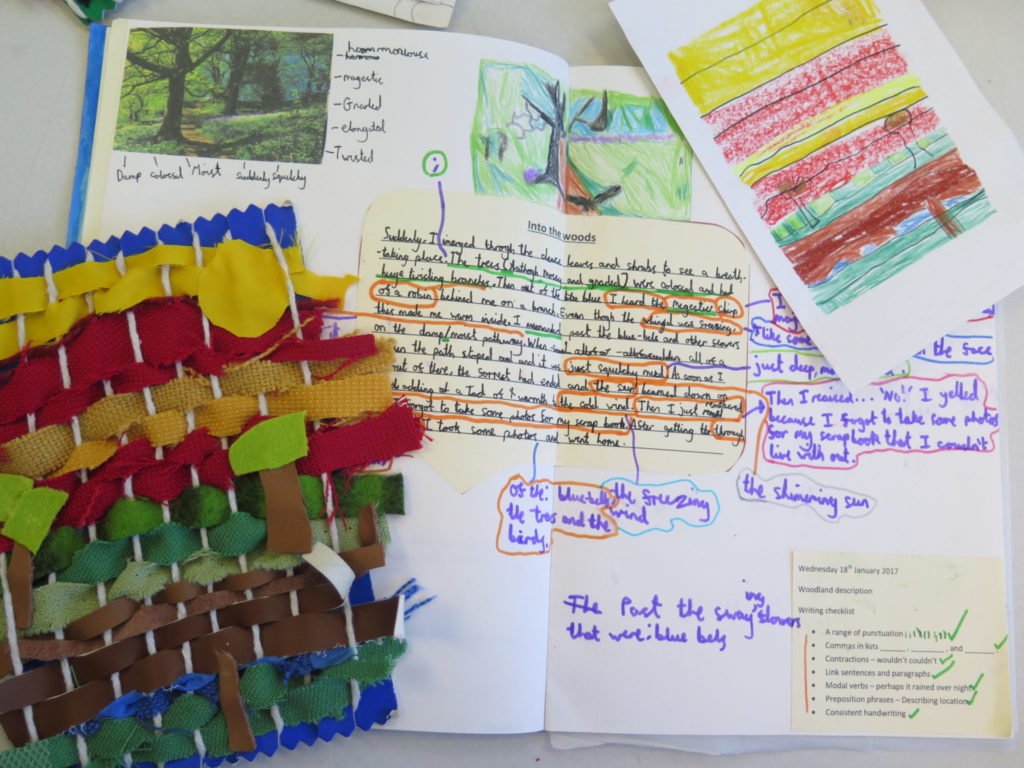 - magestic
- Gnarled
- elongated
- Twisted
Damp colossal Moist suddenly squelchy
;
Into the woods
Suddenly, I emerged throgh the leaves and shrubs to see a breath-
-taking place. The trees (Although mossy and gnarled) were colossal and had
huge twisting branches. Then out of the blue I heard the magestic chirp
of a robin behind me on a branch. Evean thogh the was freezing,
this made me warm inside. I meandered past the blue-bells and other flowers
on the damp/moist pathway. When all of a
the path stoped and it was just squelchy mud. As soon as I
out of there, the had ended and the sun beamed down on
adding a warmth to the cold wind. Then I just remembered
forgot to take some photos for my scrap book. After getting through
I took some photos and went home.
like some
the face
just deep,
Then I realised... "No!" I yelled
because I forgot to take some photos
for my scrapbook that I couldn't
live with out.
the shimering sun
of the: blue-bells
the tres and the
birdy.
the freezing
wind
The Past the swaying flowers
that were: blue bels
Wednesday 18th January 2017
Woodland description
Writing checklist
A range of punctuation
Commas in lists ______, ______, and ______.
Contractions – wouldn't couldn't
Link sentences and paragraphs
Modal verbs – perhaps it rained over night
Preposition phrases – Describing location
Consistent handwriting